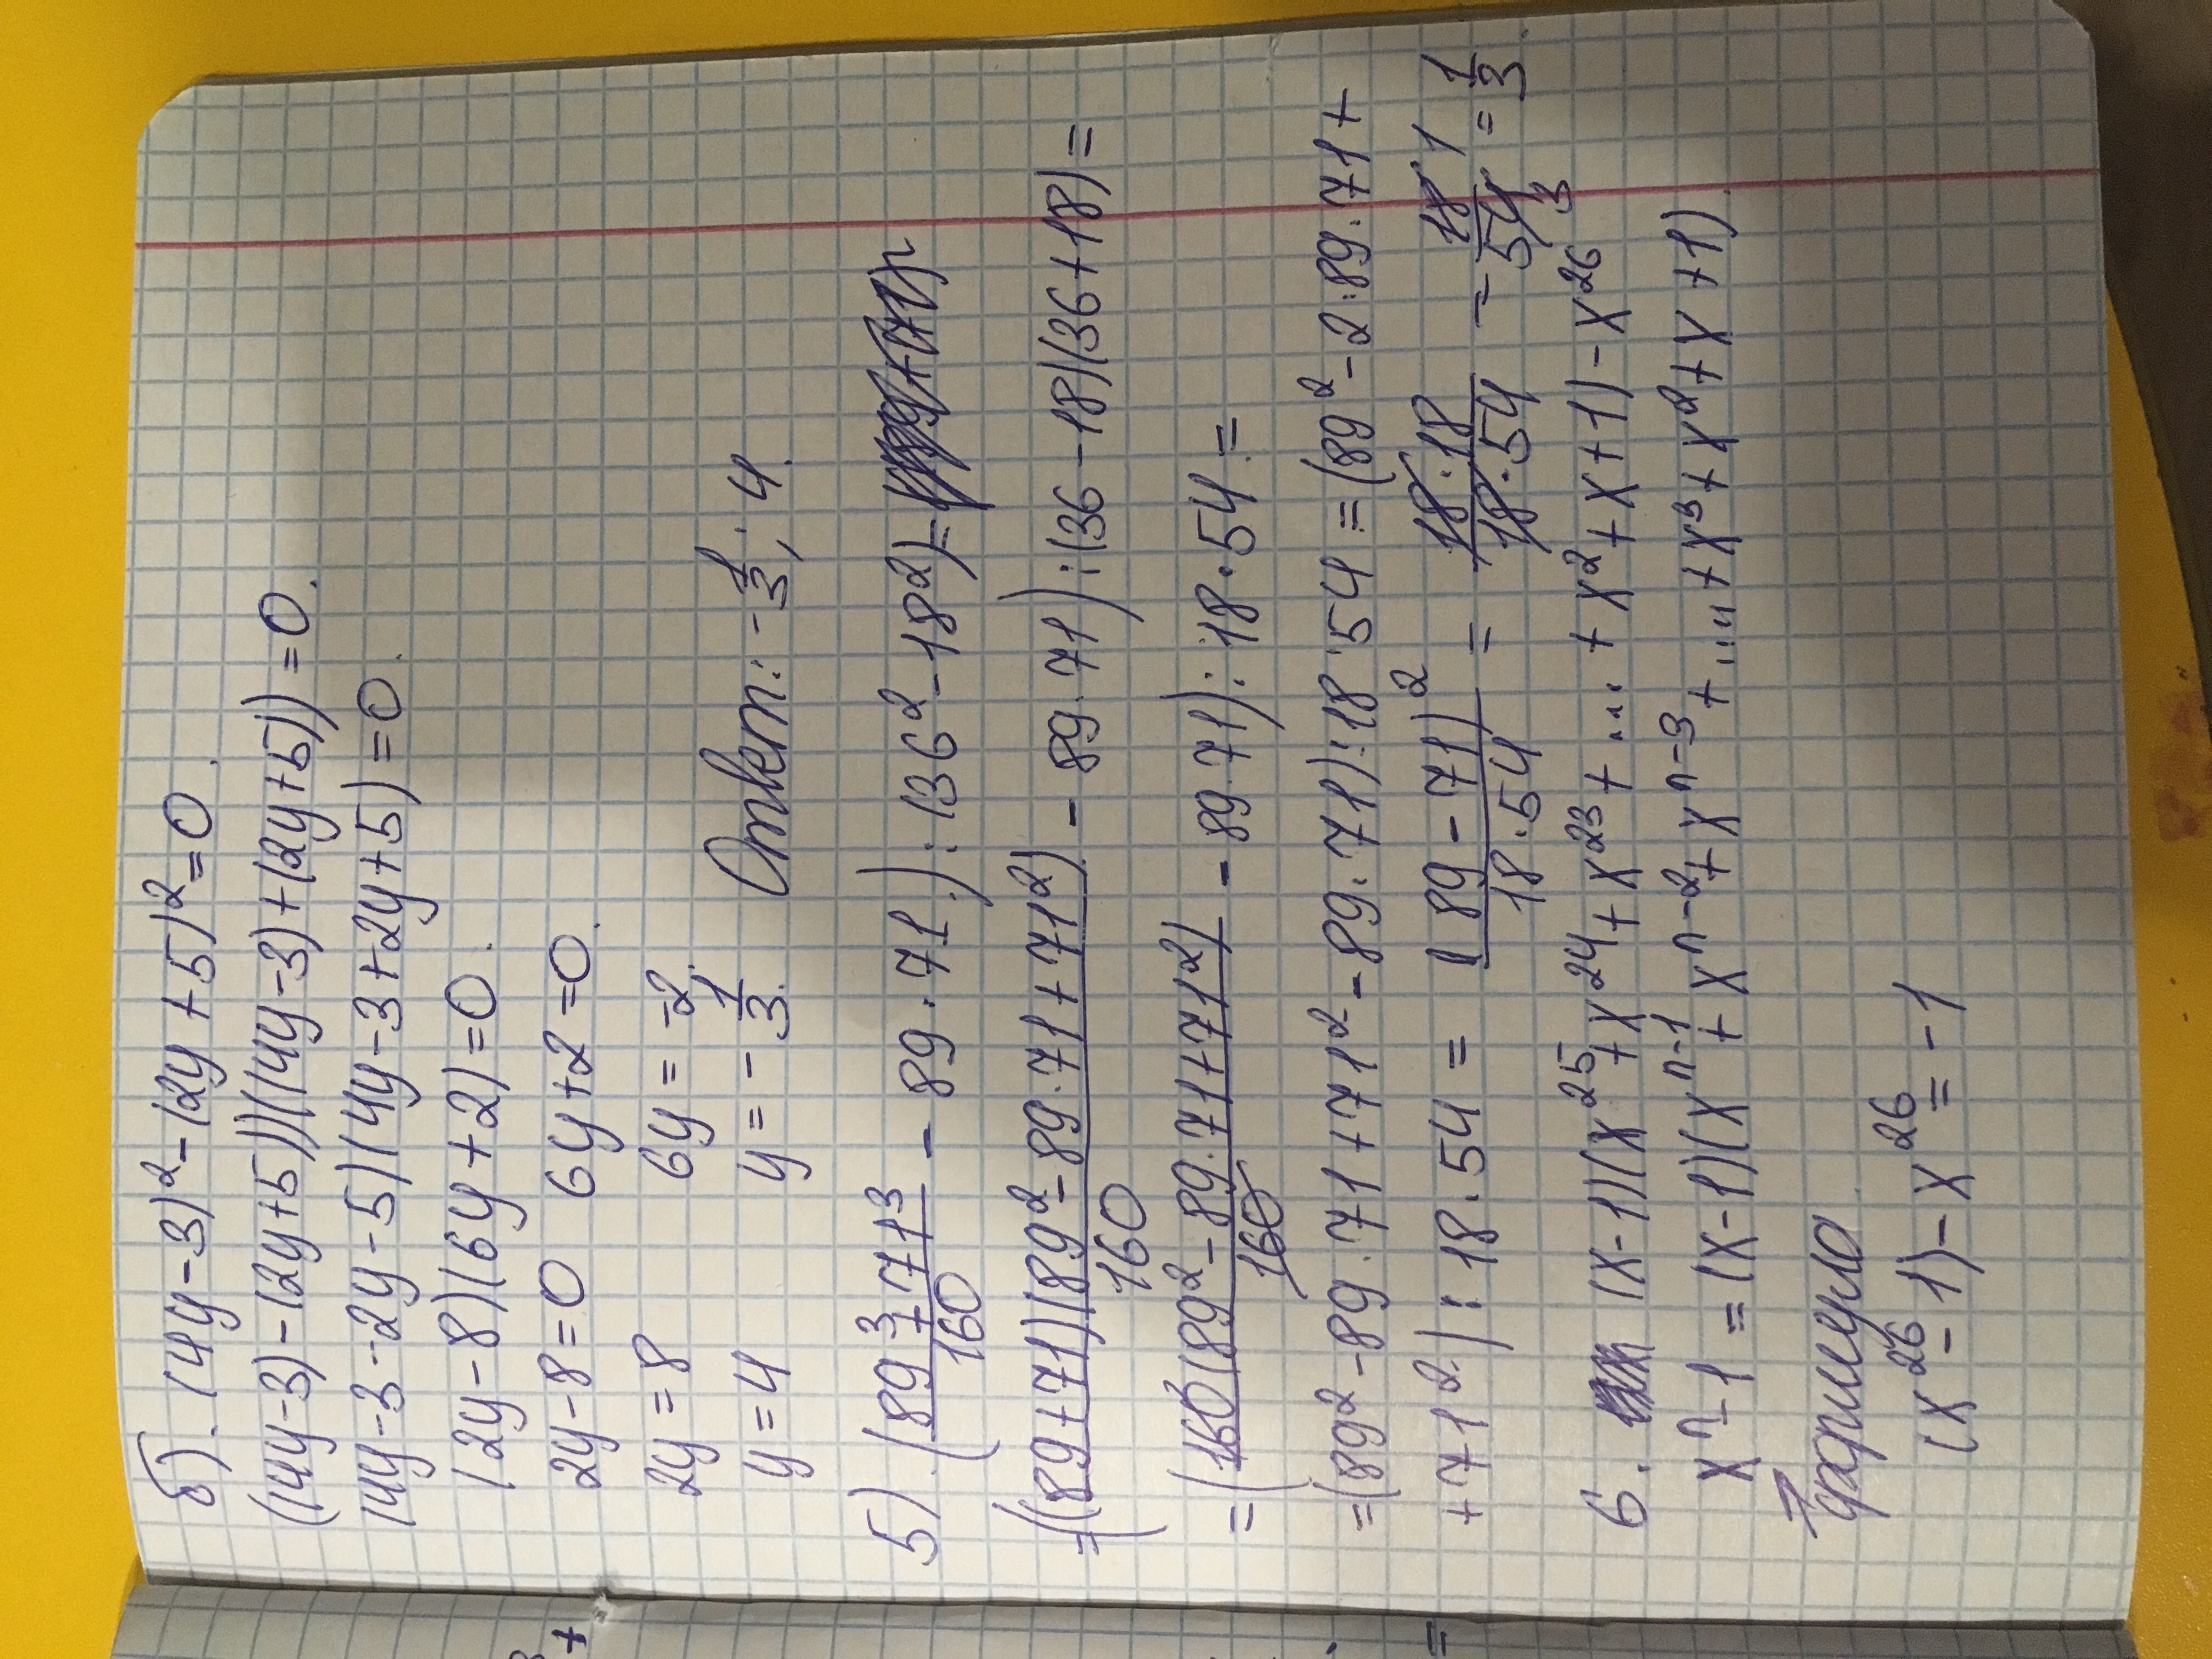 б). (4y-3)²-(2y+5)²=0.
((4y-3)-(2y+5))((4y-3)+(2y+5))=0.
(4y-3-2y-5)(4y-3+2y+5)=0.
(2y-8)(6y+2)=0.
2y-8=0 6y+2=0.
2y=8 6y=-2.
y=4 y=-1/3.
Ответ: -1/3; 4.
5). (89³+71³/160 - 89·71):(36²-18²)=
=((89+71)(89²-89·71+71²)/160 - 89·71):(36-18)(36+18)=
=(160(89²-89·71+71²)/160 - 89·71):18·54=
=(89²-89·71+71²-89·71):18·54=(89²-2·89·71+
+71²):18·54 = (89-71)²/18·54 = 18·18/18·54 = 18/54 1/3 = 1/3.
6. (x-1)(x²⁵+x²⁴+x²³+...+x²+x+1)-x²⁶
xⁿ-1=(x-1)(xⁿ⁻¹+xⁿ⁻²+xⁿ⁻³+...+x³+x²+x+1).
формула
(x²⁶-1)-x²⁶=-1
3+
=